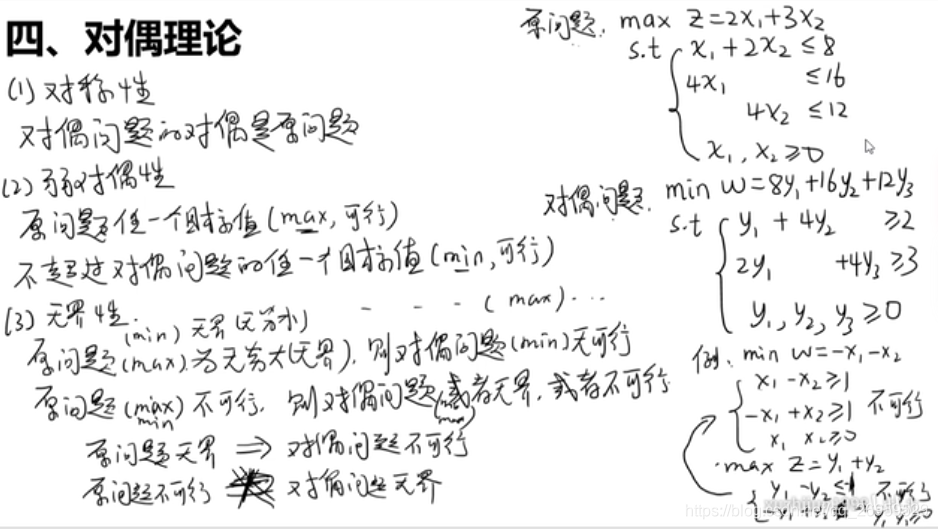 四、对偶理论
(1) 对称性
对偶问题的对偶是原问题
(2) 弱对偶性
原问题任一个目标值(max,可行)
不超过对偶问题的任一个目标值(min,可行)
(3) 无界性. - - - (max)...
(min) 无界(无穷小)
原问题(max)为无穷大(无界), 则对偶问题(min)无可行
原问题(max)不可行, 则对偶问题或者无界, 或者不可行
min max
原问题无界 ⇒ 对偶问题不可行
原问题不可行 对偶问题无界
原问题. max Z=2x₁+3x₂
s.t x₁+2x₂ ≤8
4x₁ ≤16
4x₂ ≤12
x₁, x₂ ≥0
对偶问题. min w=8y₁+16y₂+12y₃
s.t y₁ + 4y₂ ≥2
2y₁ +4y₃ ≥3
y₁, y₂, y₃ ≥0
例. min w=-x₁-x₂
x₁-x₂≥1
-x₁+x₂≥1 不可行
x₁ x₂≥0
max Z=y₁+y₂
y₁-y₂≤-1 不可行
y₁ y₂≥0
https://blog